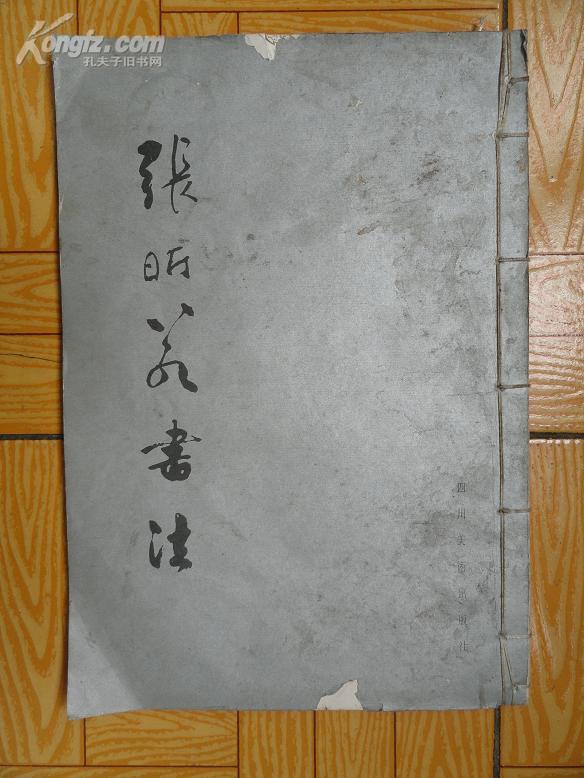 Kongfz.com
孔夫子旧书网
張昕若書法
四川美術出版社